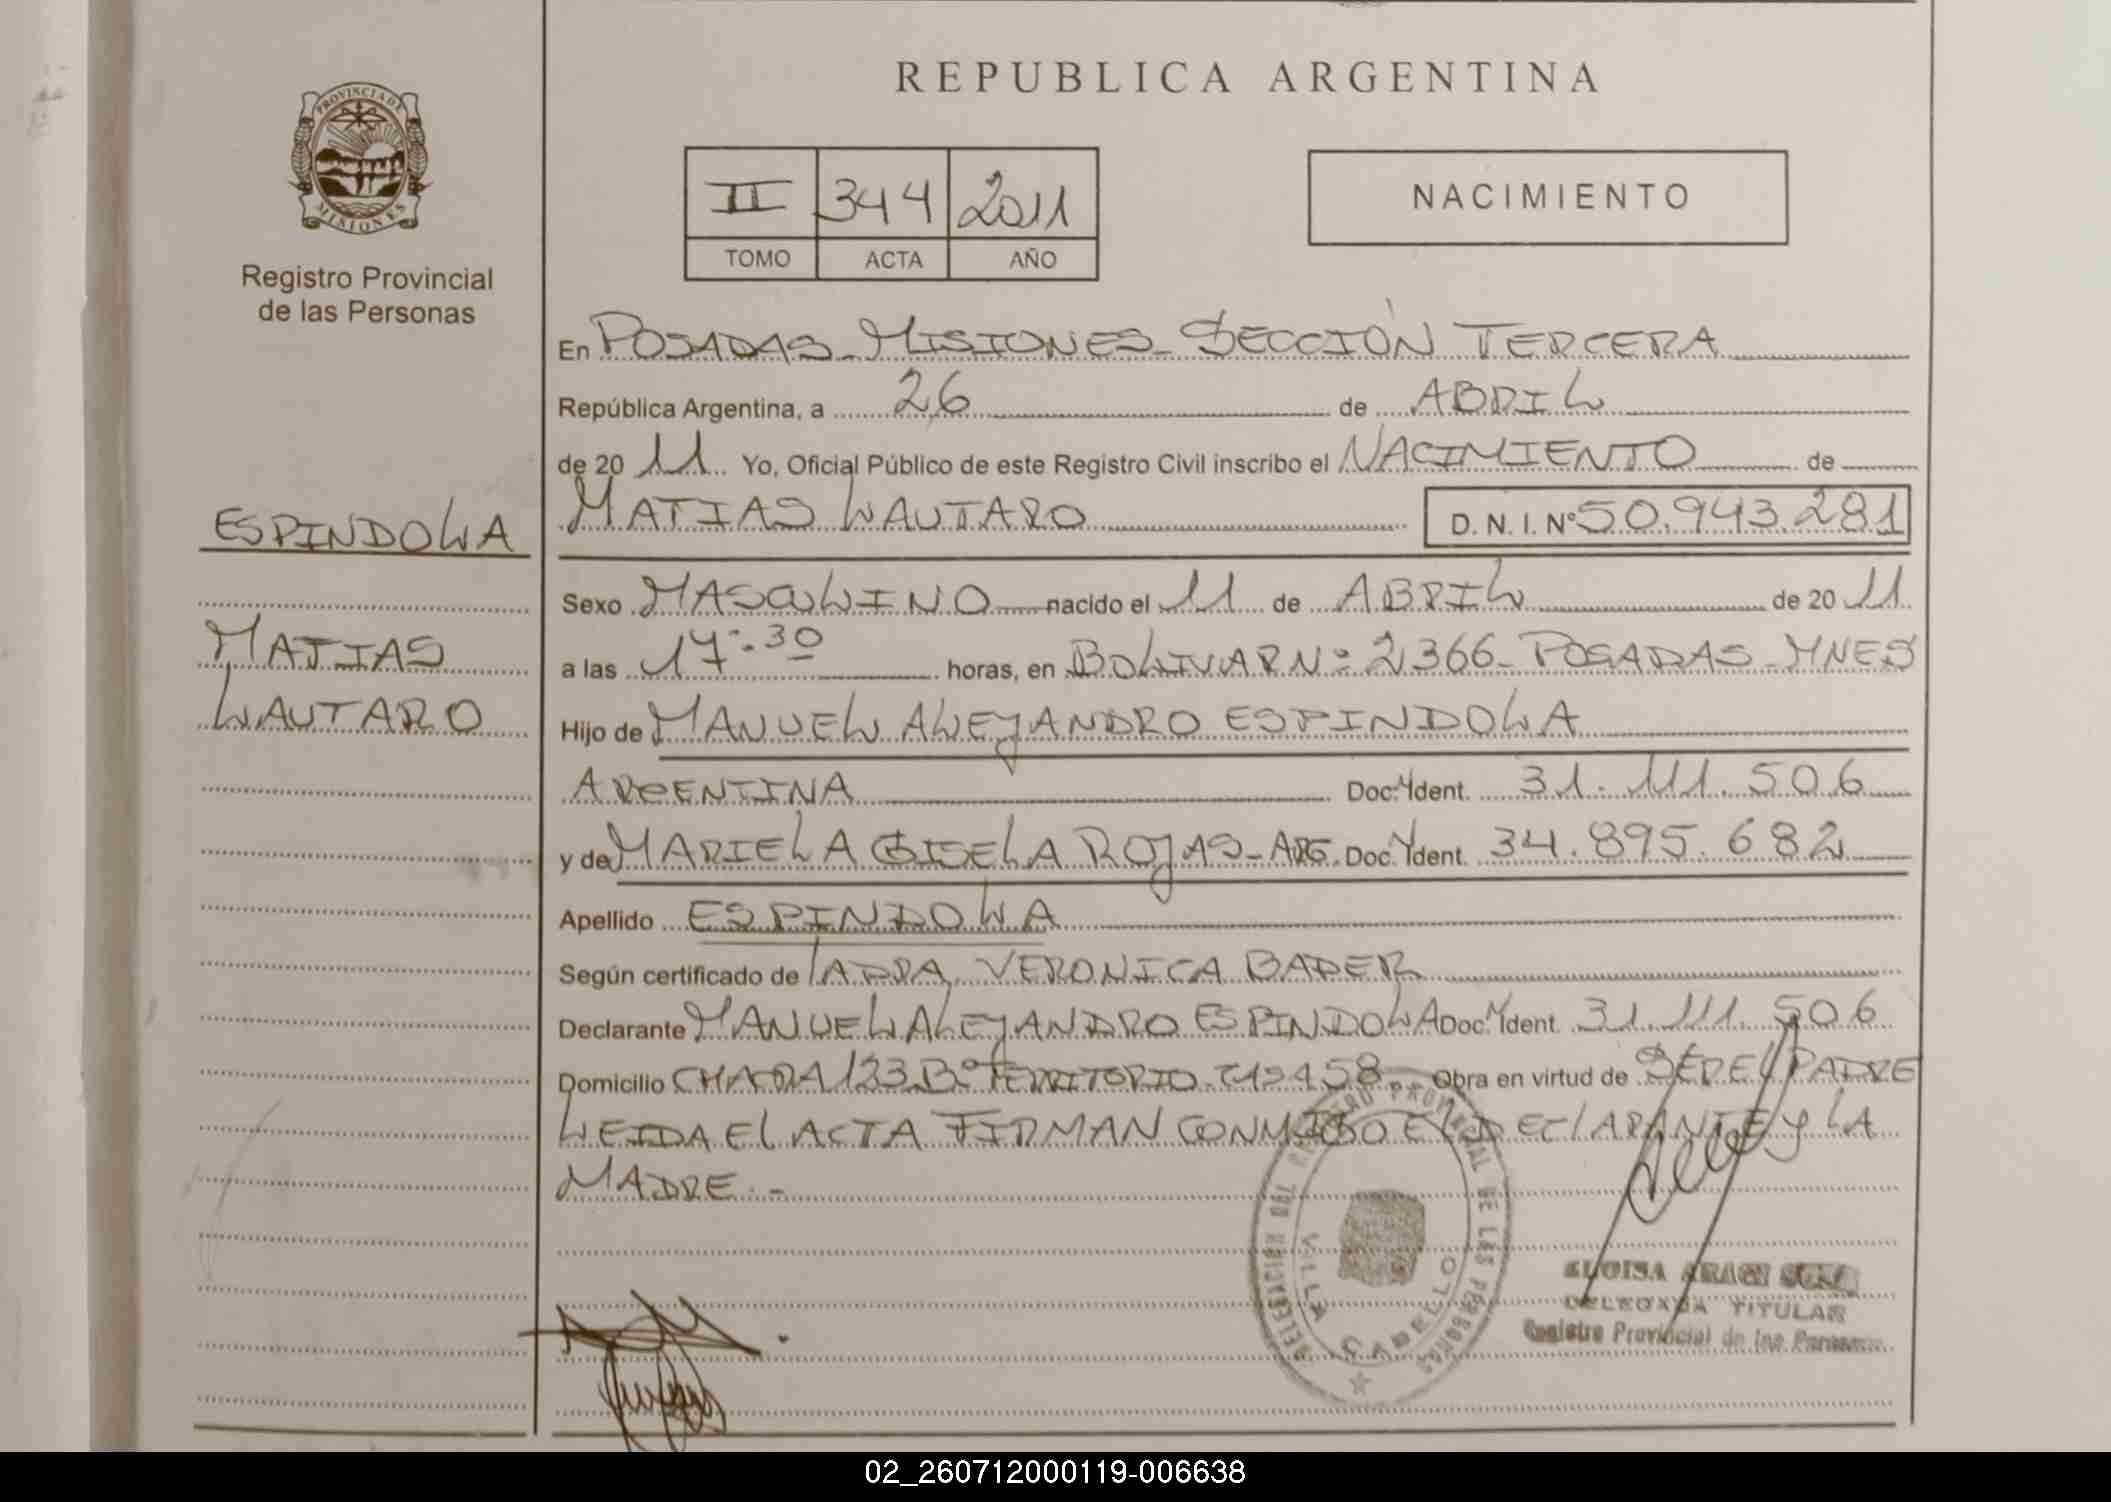 PROVINCIA DE
MISIONES
Registro Provincial
de las Personas
ESPINDOLA
MATIAS
LAUTARO
REPUBLICA ARGENTINA
II 344 2011
TOMO ACTA AÑO
NACIMIENTO
En POSADAS - MISIONES - SECCIÓN TERCERA
República Argentina, a 26 de ABRIL
de 20 11 Yo, Oficial Público de este Registro Civil inscribo el NACIMIENTO de
MATIAS LAUTARO D. N. I. Nº 50.943.281
Sexo MASCULINO nacido el 11 de ABRIL de 20 11
a las 17:30 horas, en BOLIVAR Nº 2366 - POSADAS - MNES
Hijo de MANUEL ALEJANDRO ESPINDOLA
ARGENTINA Doc. Ident. 31.111.506
y de MARIELA GISELA ROJAS - ARG. Doc. Ident. 34.895.682
Apellido ESPINDOLA
Según certificado de VERONICA BADER
Declarante MANUEL ALEJANDRO ESPINDOLA Doc. Ident. 31.111.506
Domicilio CHACRA 123 Bº TERRITORIO 458 Obra en virtud de SER EL PADRE
LEIDA EL ACTA FIRMAN CONMIGO EL DECLARANTE Y LA
MADRE. -
DELEGACION DEL REGISTRO PROVINCIAL DE LAS PERSONAS
VILLA CABELLO
ELOISA
DELEGADA TITULAR
Registro Provincial de las Personas
02_260712000119-006638